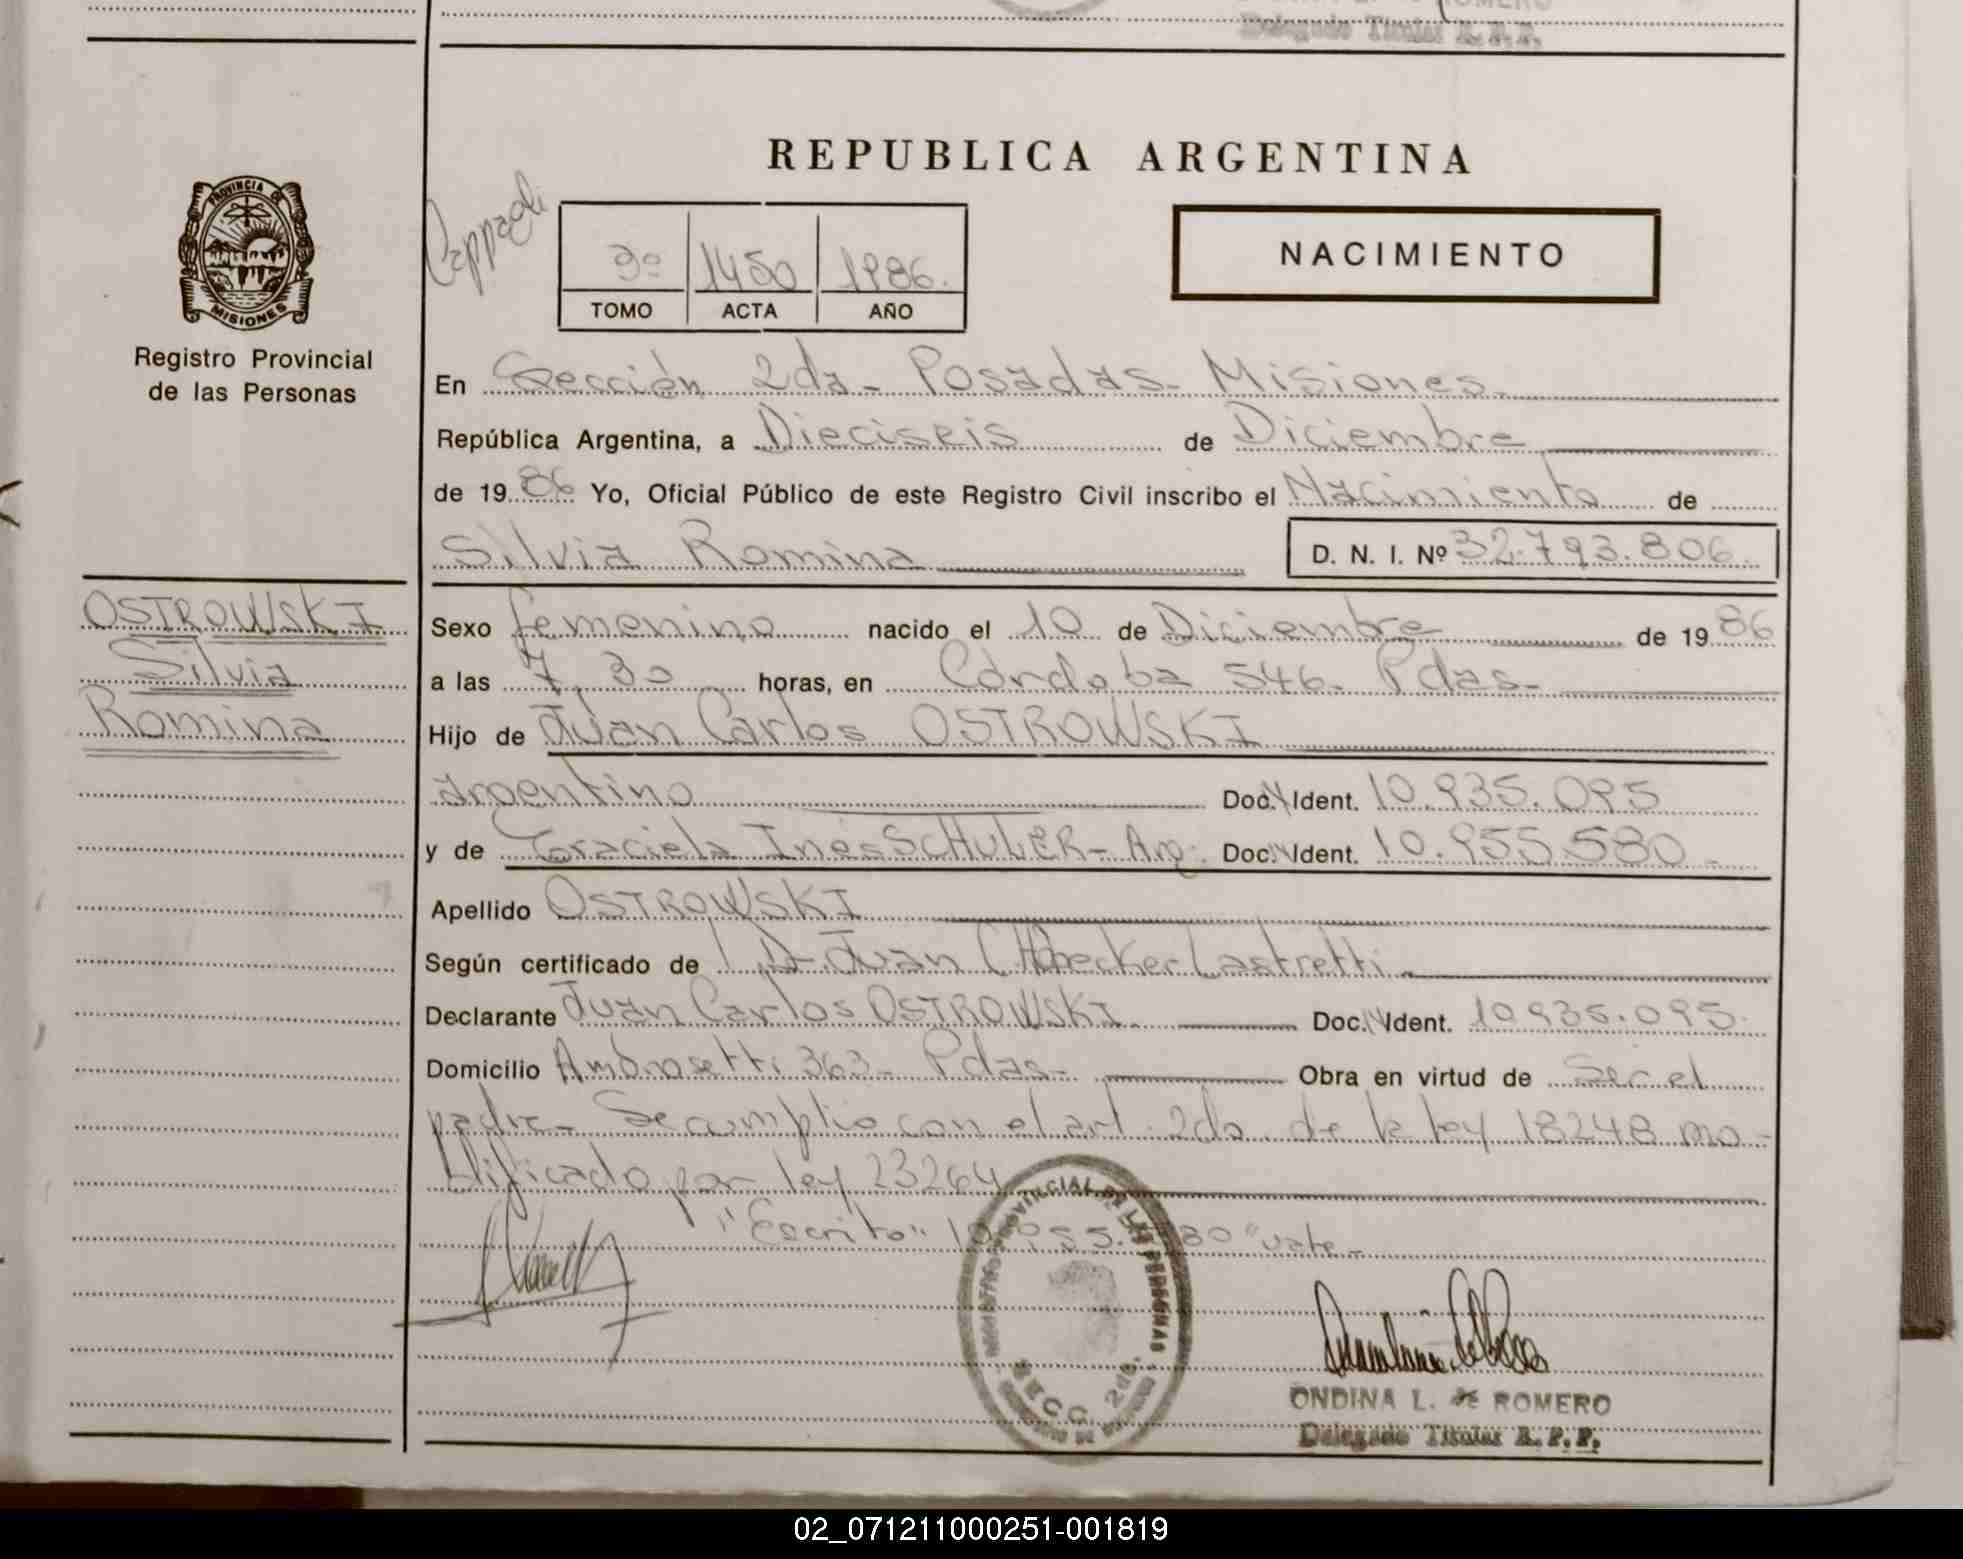 ROMERO
Delegado Titular R. P. P.
REPUBLICA ARGENTINA
PROVINCIA DE
MISIONES
Registro Provincial
de las Personas
3º 1450 1986.
TOMO ACTA AÑO
NACIMIENTO
En Sección 2da- Posadas- Misiones
República Argentina, a Dieciseis de Diciembre
de 1986 Yo, Oficial Público de este Registro Civil inscribo el Nacimiento de
Silvia Romina D. N. I. Nº 32.793.806.
OSTROWSKI
Silvia
Romina
Sexo femenino nacido el 10 de Diciembre de 1986
a las 7,30 horas, en Córdoba 546- Pdas-
Hijo de Juan Carlos OSTROWSKI
argentino Doc. Ident. 10.935.095
y de Graciela Inés SCHULER- Arg. Doc. Ident. 10.955.580-
Apellido OSTROWSKI
Según certificado de Juan Lastretti-
Declarante Juan Carlos OSTROWSKI Doc. Ident. 10.935.095.
Domicilio Ambrosetti 363- Pdas- Obra en virtud de Ser el
padre- Se cumplio con el art. 2do. de la ley 18248 mo-
dificado por ley 23264
"Escrito" 10.955.580 "vale-
PROVINCIAL DE LAS PERSONAS
SECC. 2da.
ONDINA L. de ROMERO
Delegado Titular R. P. P.
02_071211000251-001819